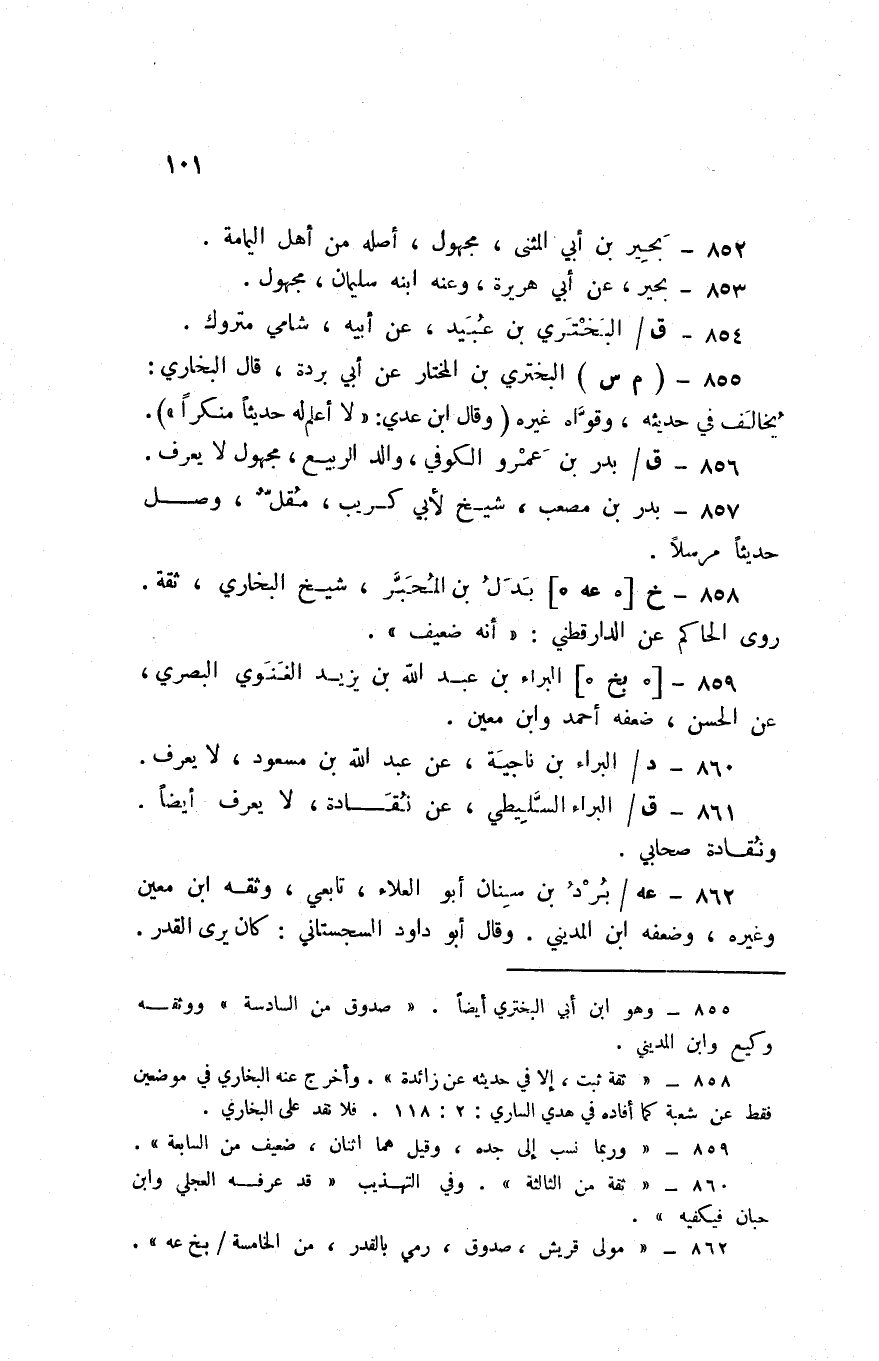 ١٠١
٨٥٢ – بَحِير بن أبي المثنى ، مجهول ، أصله من أهل اليمامة .
٨٥٣ – بحير ، عن أبي هريرة ، وعنه ابنه سليمان ، مجهول .
٨٥٤ – ق / البَخْتَري بن عُبَيد ، عن أبيه ، شامي متروك .
٨٥٥ – ( م س ) البختري بن المختار عن أبي بردة ، قال البخاري :
يُخالَف في حديثه ، وقوَّاه غيره ( وقال ابن عدي: « لا أعلم له حديثاً منكراً »).
٨٥٦ – ق / بدر بن عَمْرو الكوفي ، والد الربيع ، مجهول لا يعرف .
٨٥٧ – بدر بن مصعب ، شيخ لأبي كريب ، مُقلّ ، وصل
حديثاً مرسلاً .
٨٥٨ – خ [ ٥ عه ٥ ] بَدَلُ بن المُحَبَّر ، شيخ البخاري ، ثقة .
روى الحاكم عن الدارقطني : « أنه ضعيف » .
٨٥٩ – [ ٥ بخ ٥ ] البراء بن عبد الله بن يزيد الغَنَوي البصري ،
عن الحسن ، ضعفه أحمد وابن معين .
٨٦٠ – د / البراء بن ناجيَة ، عن عبد الله بن مسعود ، لا يعرف .
٨٦١ – ق / البراء السَّلِيطي ، عن نُقَادة ، لا يعرف أيضاً .
ونُقادة صحابي .
٨٦٢ – عه / بُرْدُ بن سِنان أبو العلاء ، تابعي ، وثقه ابن معين
وغيره ، وضعفه ابن المديني . وقال أبو داود السجستاني : كان يرى القدر .
٨٥٥ – وهو ابن أبي البختري أيضاً . « صدوق من السادسة » ووثقه
وكيع وابن المديني .
٨٥٨ – « ثقة ثبت ، إلا في حديثه عن زائدة » . وأخرج عنه البخاري في موضعين
فقط عن شعبة كما أفاده في هدي الساري : ٢ : ١١٨ . فلا نقد على البخاري .
٨٥٩ – « وربما نسب إلى جده ، وقيل هما اثنان ، ضعيف من السابعة » .
٨٦٠ – « ثقة من الثالثة » . وفي التهذيب « قد عرفه العجلي وابن
حبان فيكفيه » .
٨٦٢ – « مولى قريش ، صدوق ، رمي بالقدر ، من الخامسة / بخ عه » .